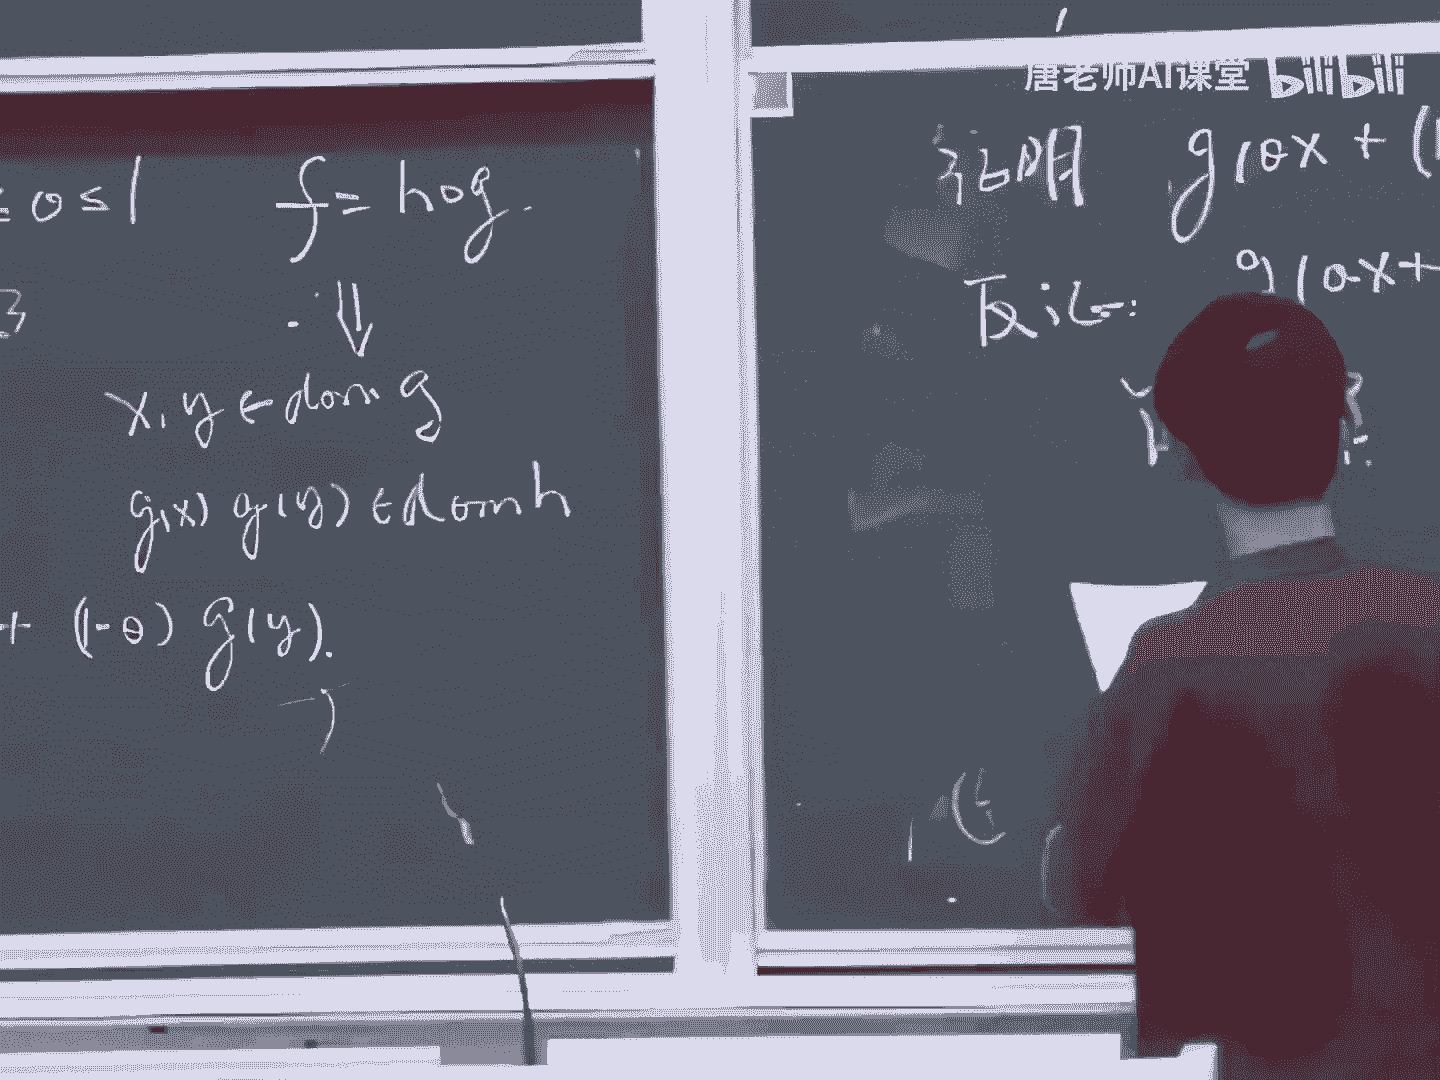 唐老师AI课堂 bilibili
≤ θ ≤ 1 f = h∘g.
⇓
x, y ∈ dom g
g(x) g(y) ∈ dom h
+ (1-θ) g(y).
证明 g(θx + (1
反证: g(θx+